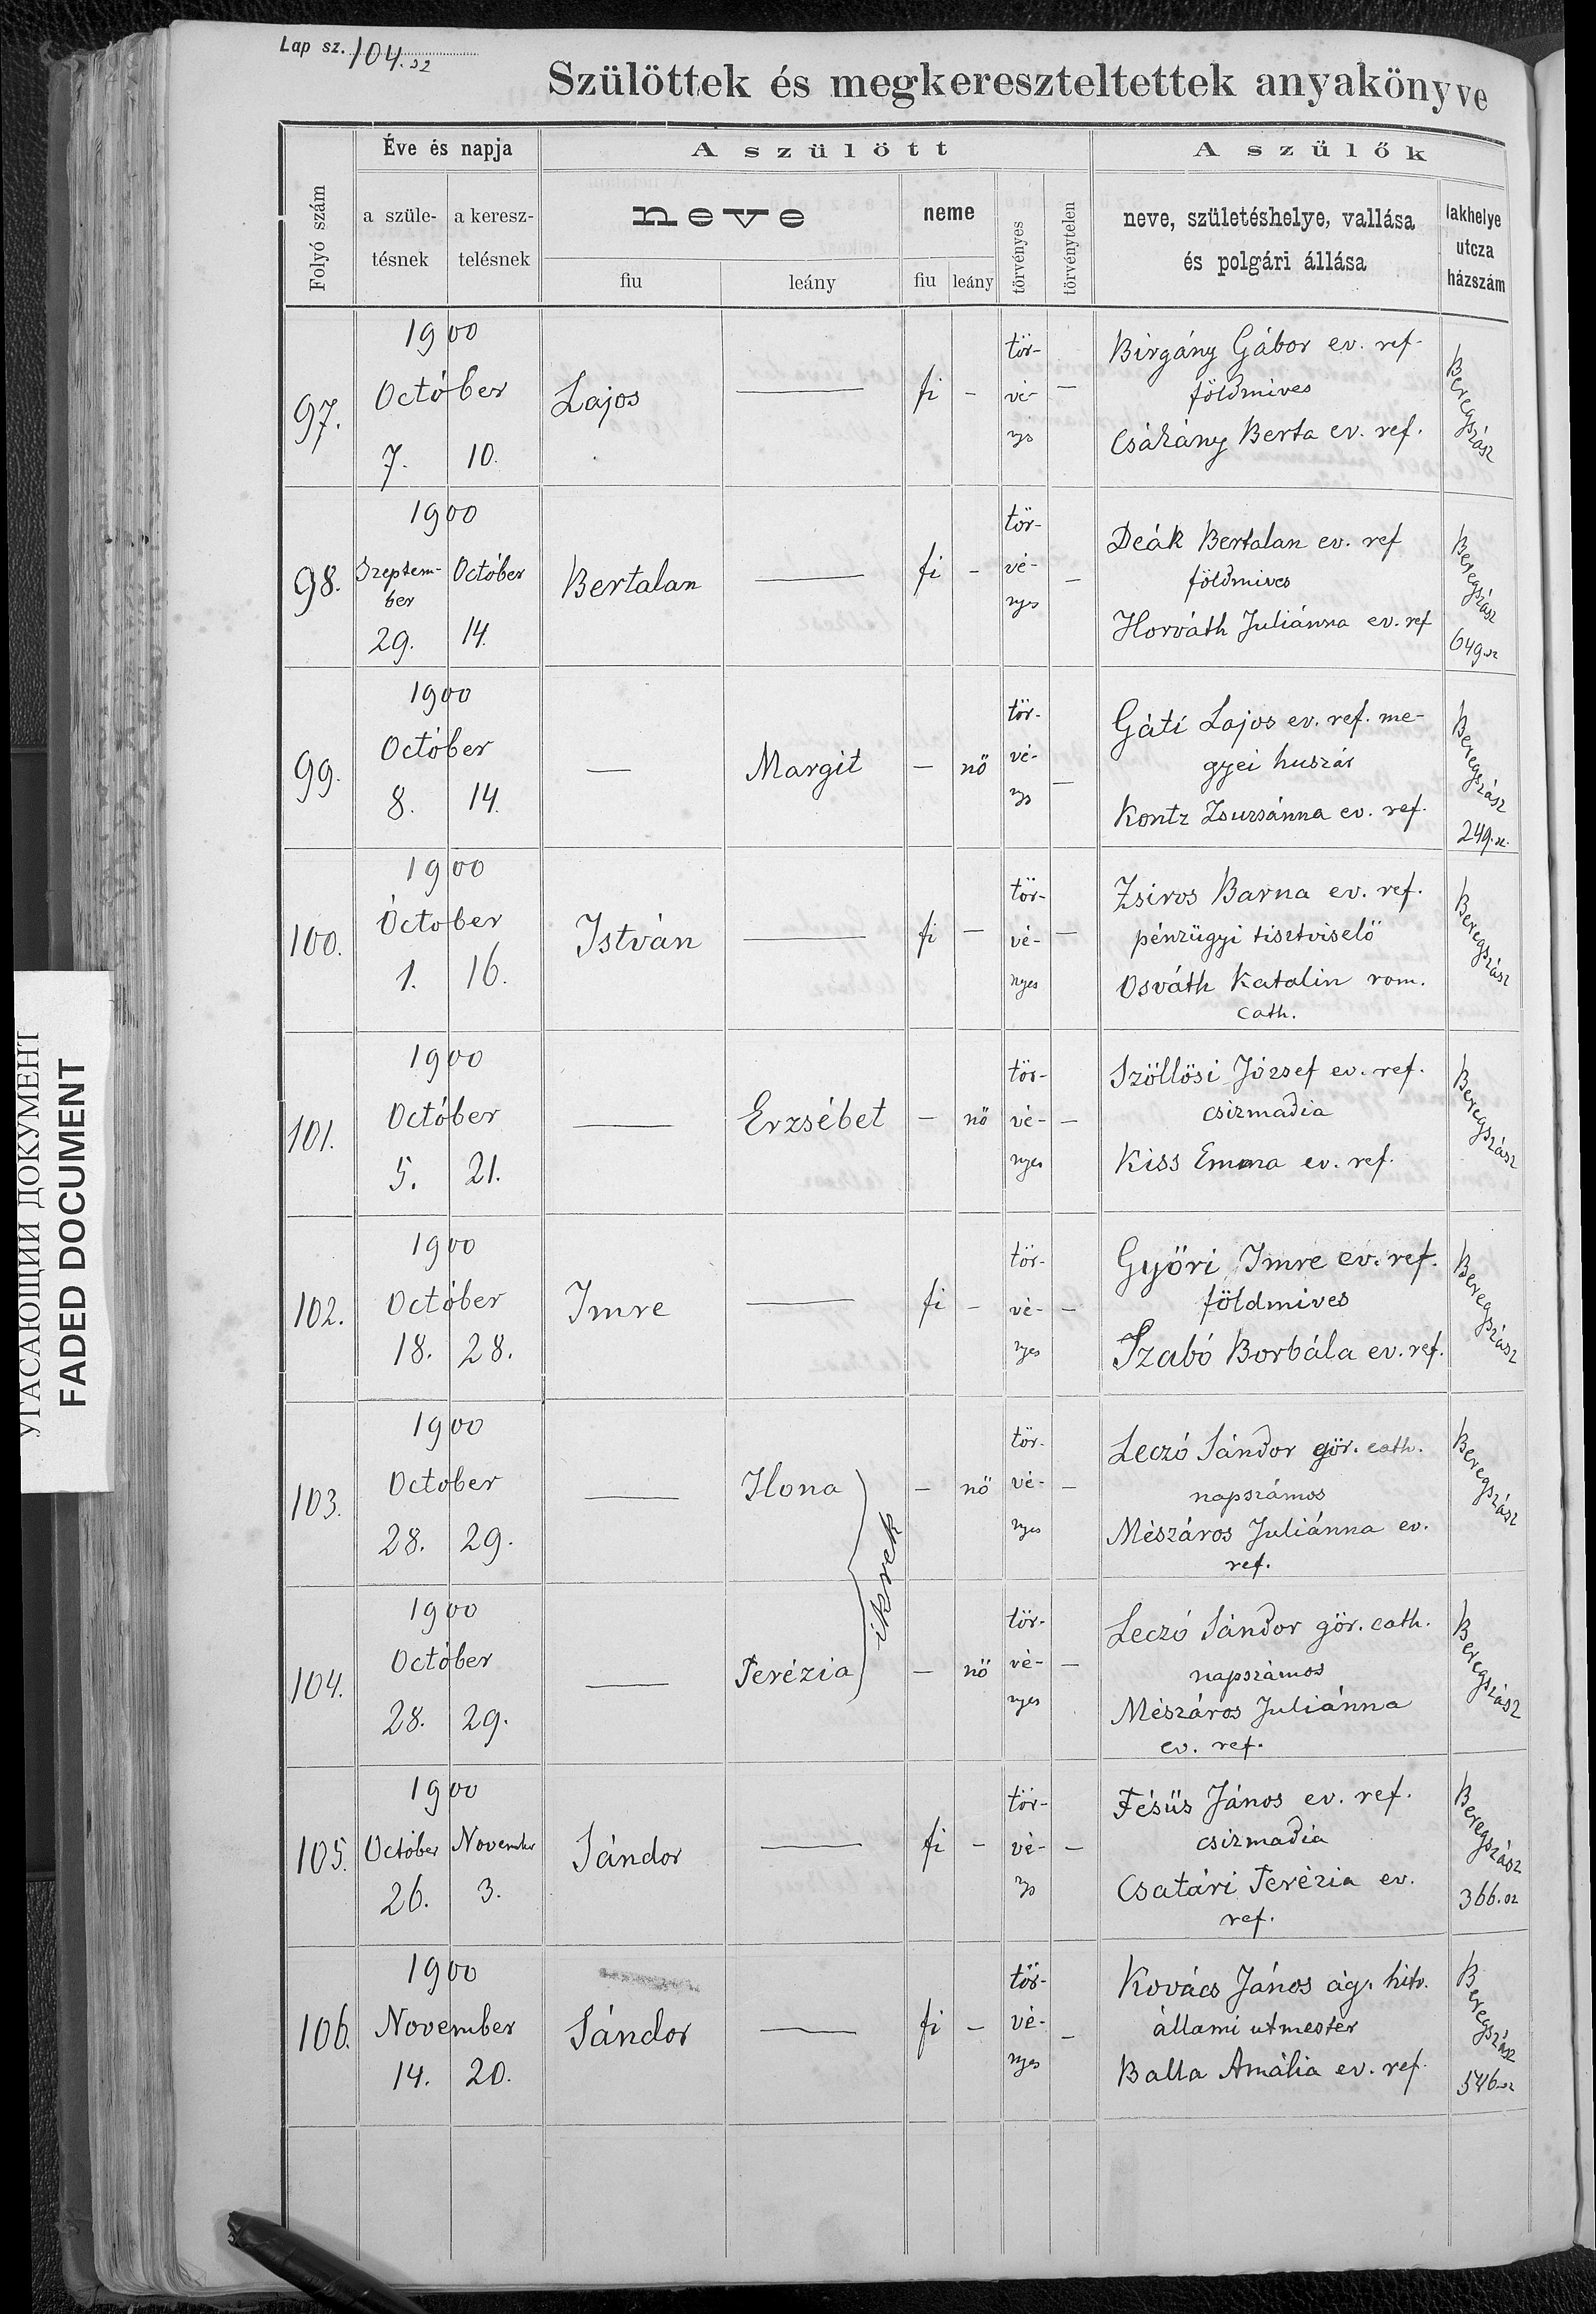 Lap sz. 104. sz
Szülöttek és megkereszteltettek anyakönyve
Folyó szám
Éve és napja
a születésnek
a keresztelésnek
A szülött
neve
fiu
leány
neme
fiu
leány
törvényes
törvénytelen
A szülők
neve, születéshelye, vallása
és polgári állása
lakhelye
utcza
házszám
97. 1900 Octóber 7. 10. Lajos — fi - törvényes — Birgány Gábor ev. ref. Beregszász
földmives
Csákány Berta ev. ref.
98. 1900 Szeptember 29. October 14. Bertalan — fi - törvényes — Deák Bertalan ev. ref Beregszász
földmives
Horváth Juliánna ev. ref 649. sz
99. 1900 Octóber 8. 14. — Margit — nő törvényes — Gáti Lajos ev. ref. me-
gyei huszár Beregszász
Kontz Zsuzsánna ev. ref. 249. sz.
100. 1900 October 1. 16. István — fi — törvényes — Zsiros Barna ev. ref. Beregszász
pénzügyi tisztviselő
Osváth Katalin rom.
cath.
101. 1900 Octóber 5. 21. — Erzsébet — nő törvényes — Szöllösi József ev. ref. Beregszász
csizmadia
Kiss Emma ev. ref.
102. 1900 Octóber 18. 28. Imre — fi - törvényes — Győri Imre ev. ref. Beregszász
földmives
Szabó Borbála ev. ref.
103. 1900 October 28. 29. — Ilona — nő törvényes — Leczó Sándor gör. cath. Beregszász
napszámos
Mészáros Juliánna ev.
ref.
ikrek
104. 1900 Octóber 28. 29. — Terézia — nő törvényes — Leczó Sándor gör. cath. Beregszász
napszámos
Mészáros Juliánna
ev. ref.
105. 1900 October 26. November 3. Sándor — fi - törvényes — Fésüs János ev. ref. Beregszász
csizmadia
Csatári Terézia ev. 366. sz
ref.
106. 1900 November 14. 20. Sándor — fi - törvényes — Kovács János ág. hitv. Beregszász
állami utmester
Balla Amália ev. ref. 546. sz
УГАСАЮЩИЙ ДОКУМЕНТ
FADED DOCUMENT